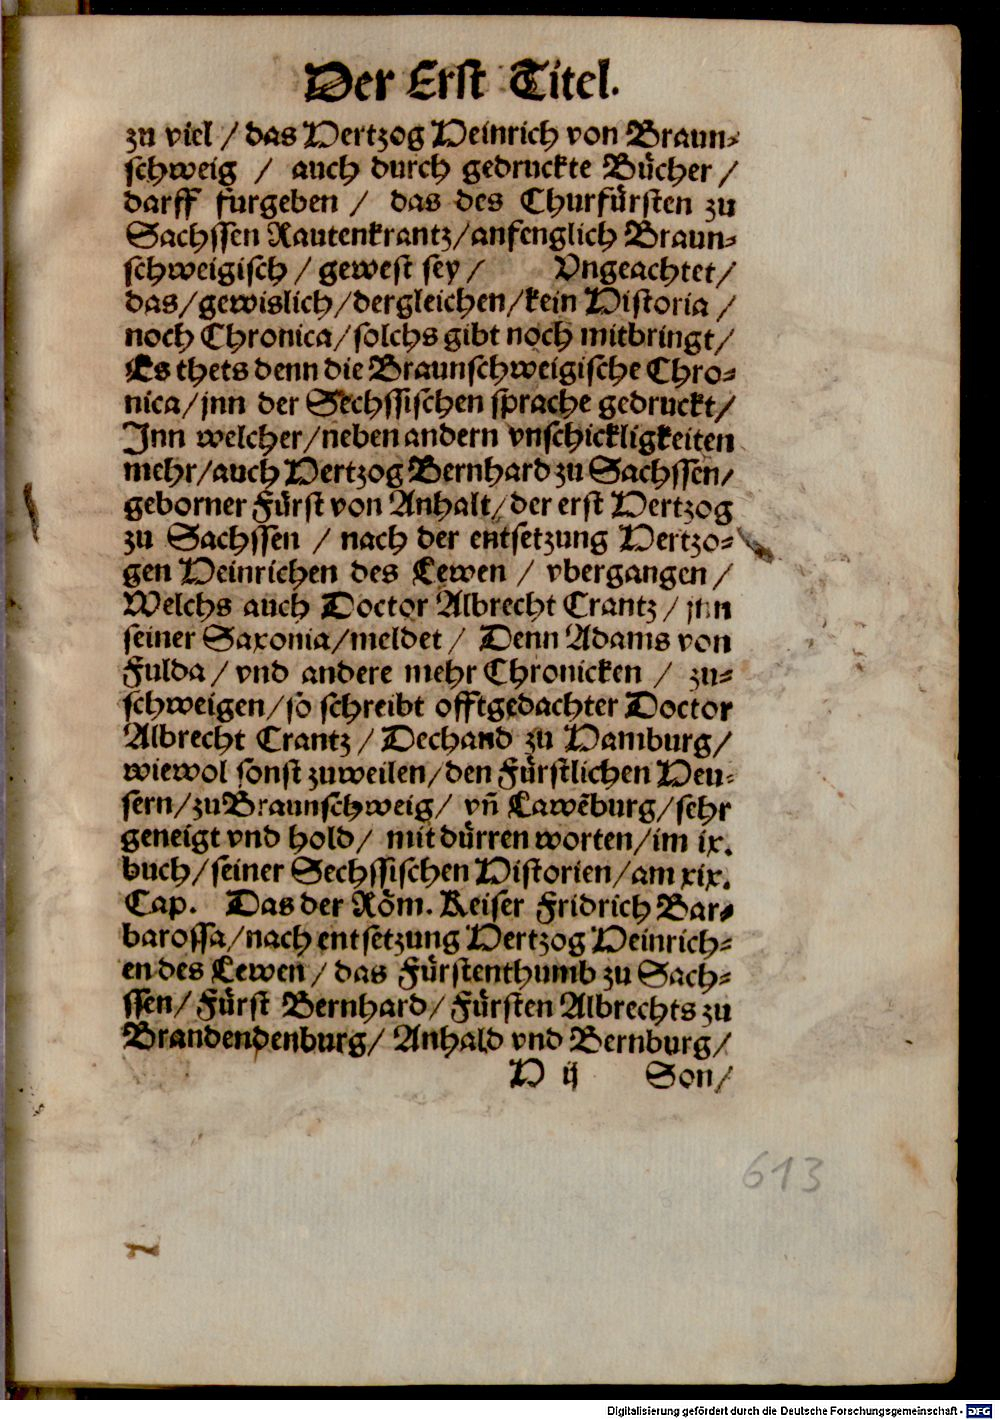 Der Erst Titel.
zu viel / das Hertzog Heinrich von Braun-
schweig / auch durch gedruckte Bücher /
darff furgeben / das des Churfürsten zu
Sachssen Rautenkrantz/anfenglich Braun-
schweigisch / gewest sey / Vngeachtet/
das/gewislich/dergleichen/kein Historia /
noch Chronica/solchs gibt noch mitbringt/
Es thets denn die Braunschweigische Chro-
nica/jnn der Sechssischen sprache gedruckt/
Inn welcher/neben andern vnschickligkeiten
mehr/auch Hertzog Bernhard zu Sachssen/
geborner Fürst von Anhalt/der erst Hertzog
zu Sachssen / nach der entsetzung Hertzo-
gen Heinrichen des Lewen / vbergangen /
Welchs auch Doctor Albrecht Crantz / jnn
seiner Saxonia/meldet / Denn Adams von
Fulda / vnd andere mehr Chronicken / zu-
schweigen/so schreibt offtgedachter Doctor
Albrecht Crantz / Dechand zu Hamburg/
wiewol sonst zuweilen/den Fürstlichen Heu-
sern/zu Braunschweig/ vñ Lawẽburg/sehr
geneigt vnd hold/ mit dürren worten/im ix.
buch/seiner Sechssischen Historien/am xix.
Cap. Das der Röm. Keiser Fridrich Bar-
barossa/nach entsetzung Hertzog Heinrich-
en des Lewen / das Fürstenthumb zu Sach-
ssen/ Fürst Bernhard/ Fürsten Albrechts zu
Brandendenburg/ Anhald vnd Bernburg/
H ij Son/
613
Digitalisierung gefördert durch die Deutsche Forschungsgemeinschaft - DFG